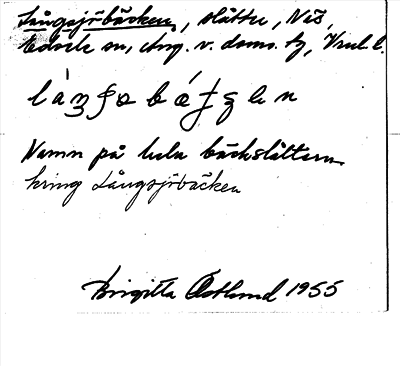 Långsjöbäcken, slåtter, Nis,
Edsele sn, Ång. v. doms. tg, Vnl. l.
Namn på hela bäckslåttern
kring Långsjöbäcken
Birgitta Östlund 1955